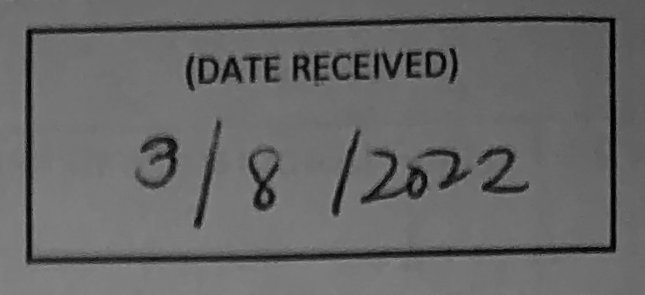 (DATE RECEIVED)
3/8/2022